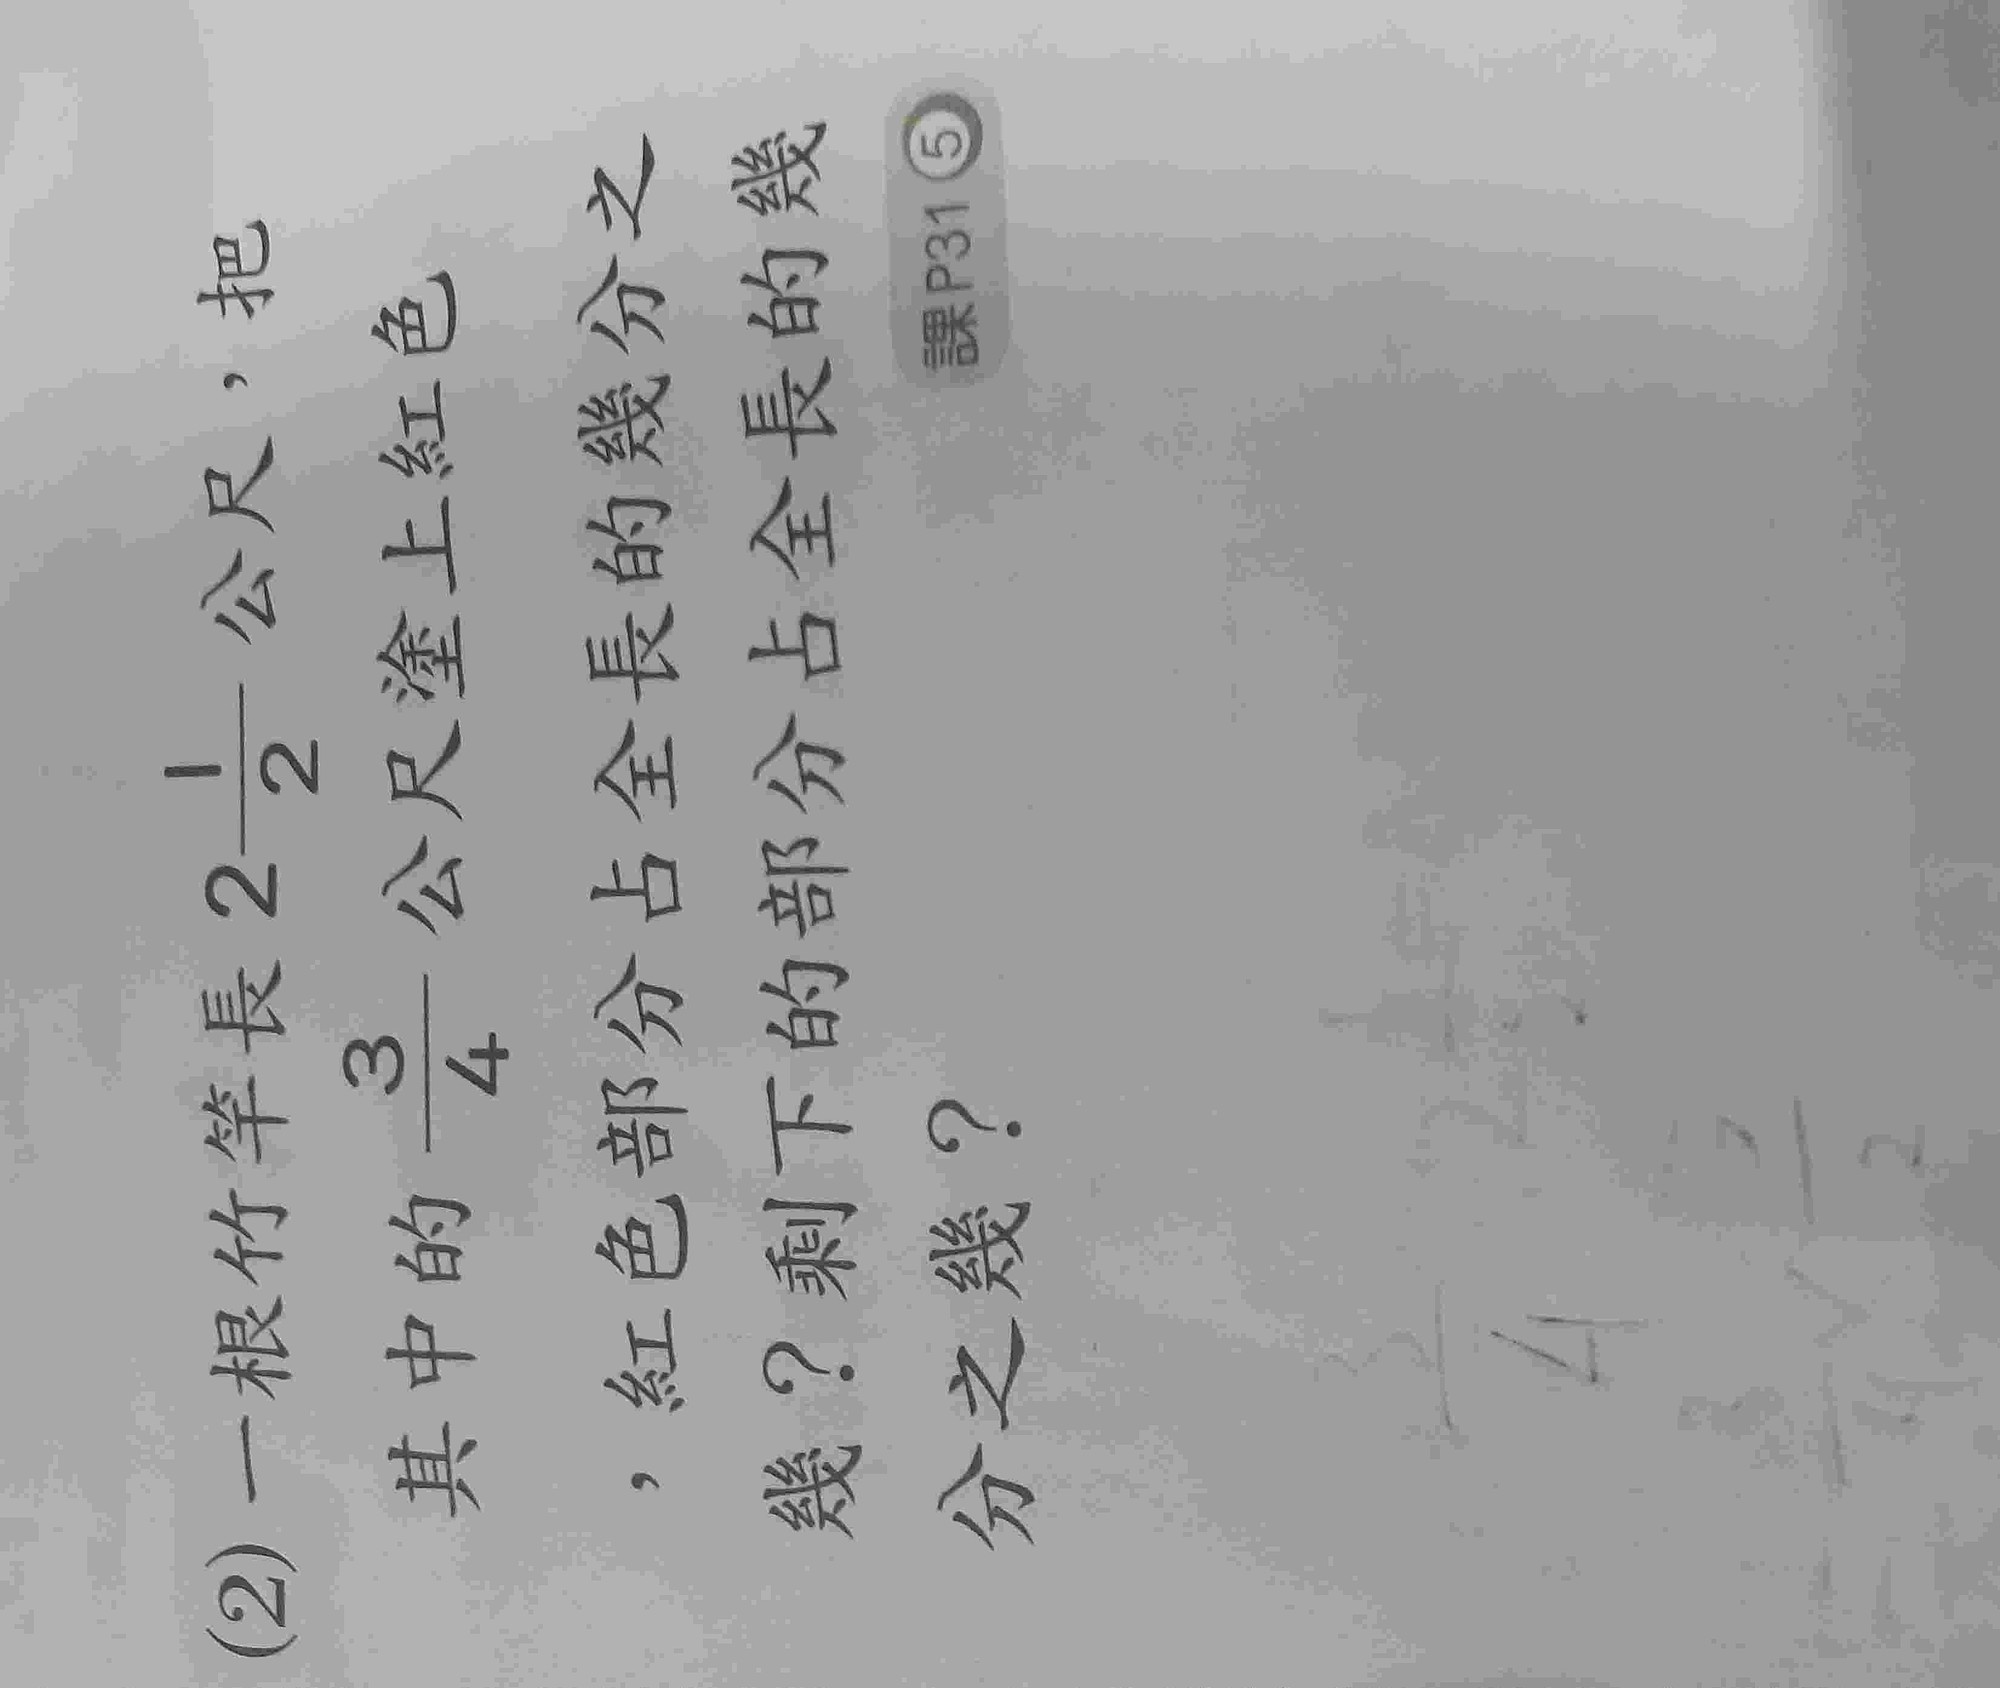 (2)一根竹竿長2 1/2 公尺，把
其中的 3/4 公尺塗上紅色
，紅色部分占全長的幾分之
幾？剩下的部分占全長的幾
分之幾？
課P31 5